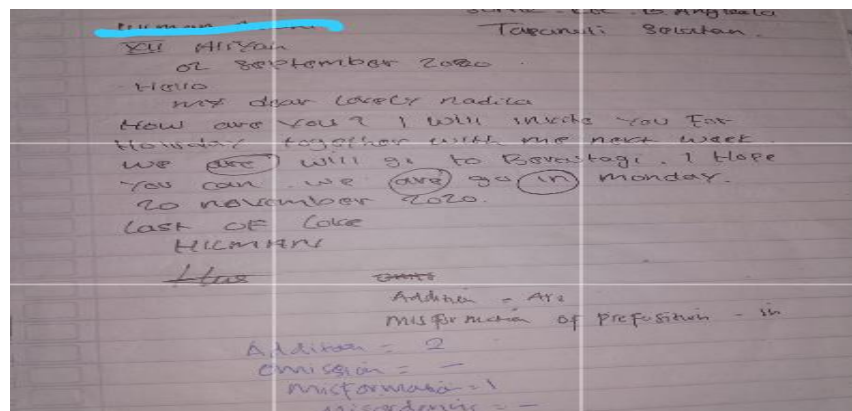 Tapanuli Selatan.
XII Aliyah
02 September 2020.
Hello
my dear lovely nadila
How are you? I will invite you For
Holiday together with me next week.
we are will go to Berastagi. I Hope
you can. we are go in monday.
20 november 2020.
Last OF Love
HIKMANI
Addition = Are
misformation of preposition - in
Addition = 2
omission = -
misformation = 1
misordering = -